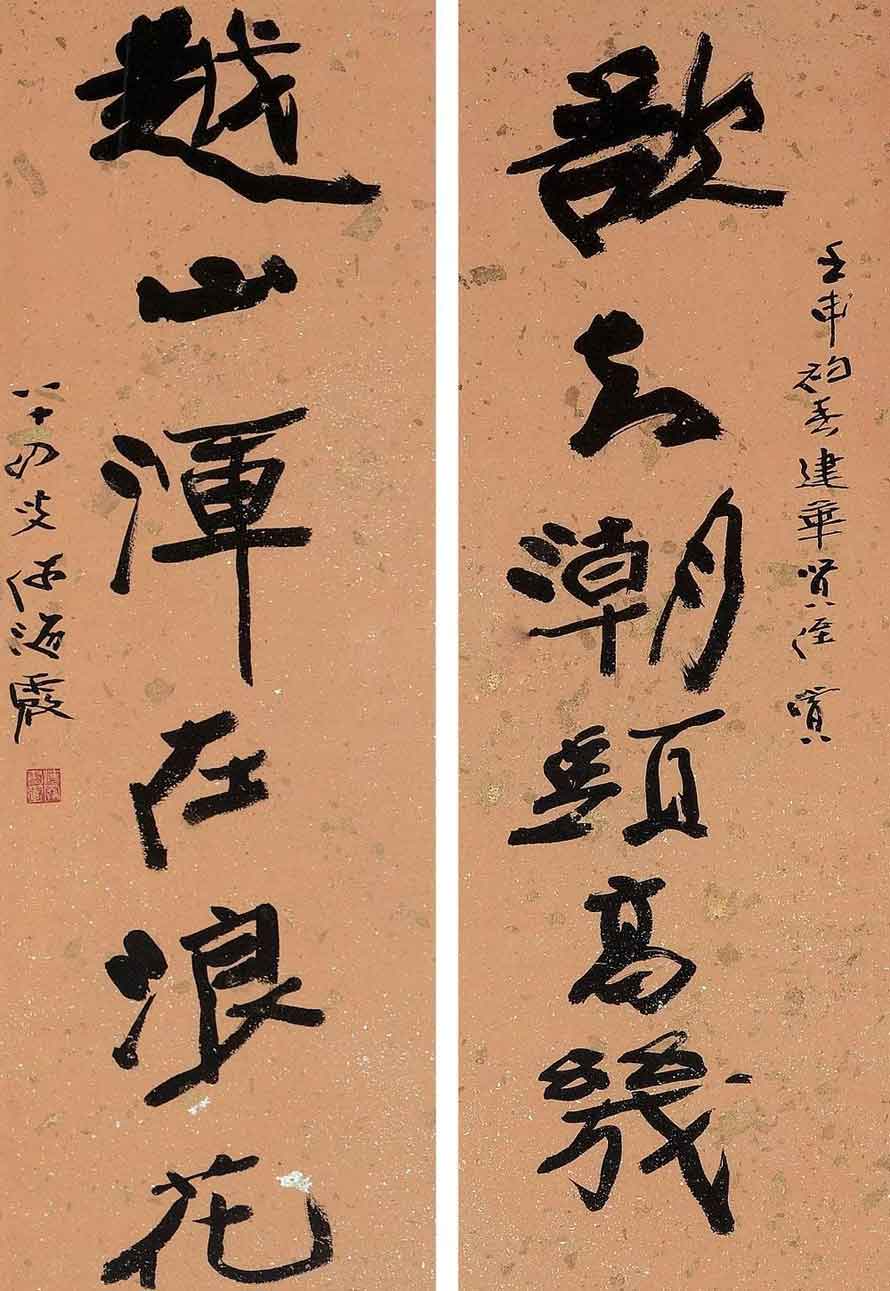 壬申初春建華賢侄賞
欲知潮頭高幾
越山渾在浪花
八十四叟何海霞